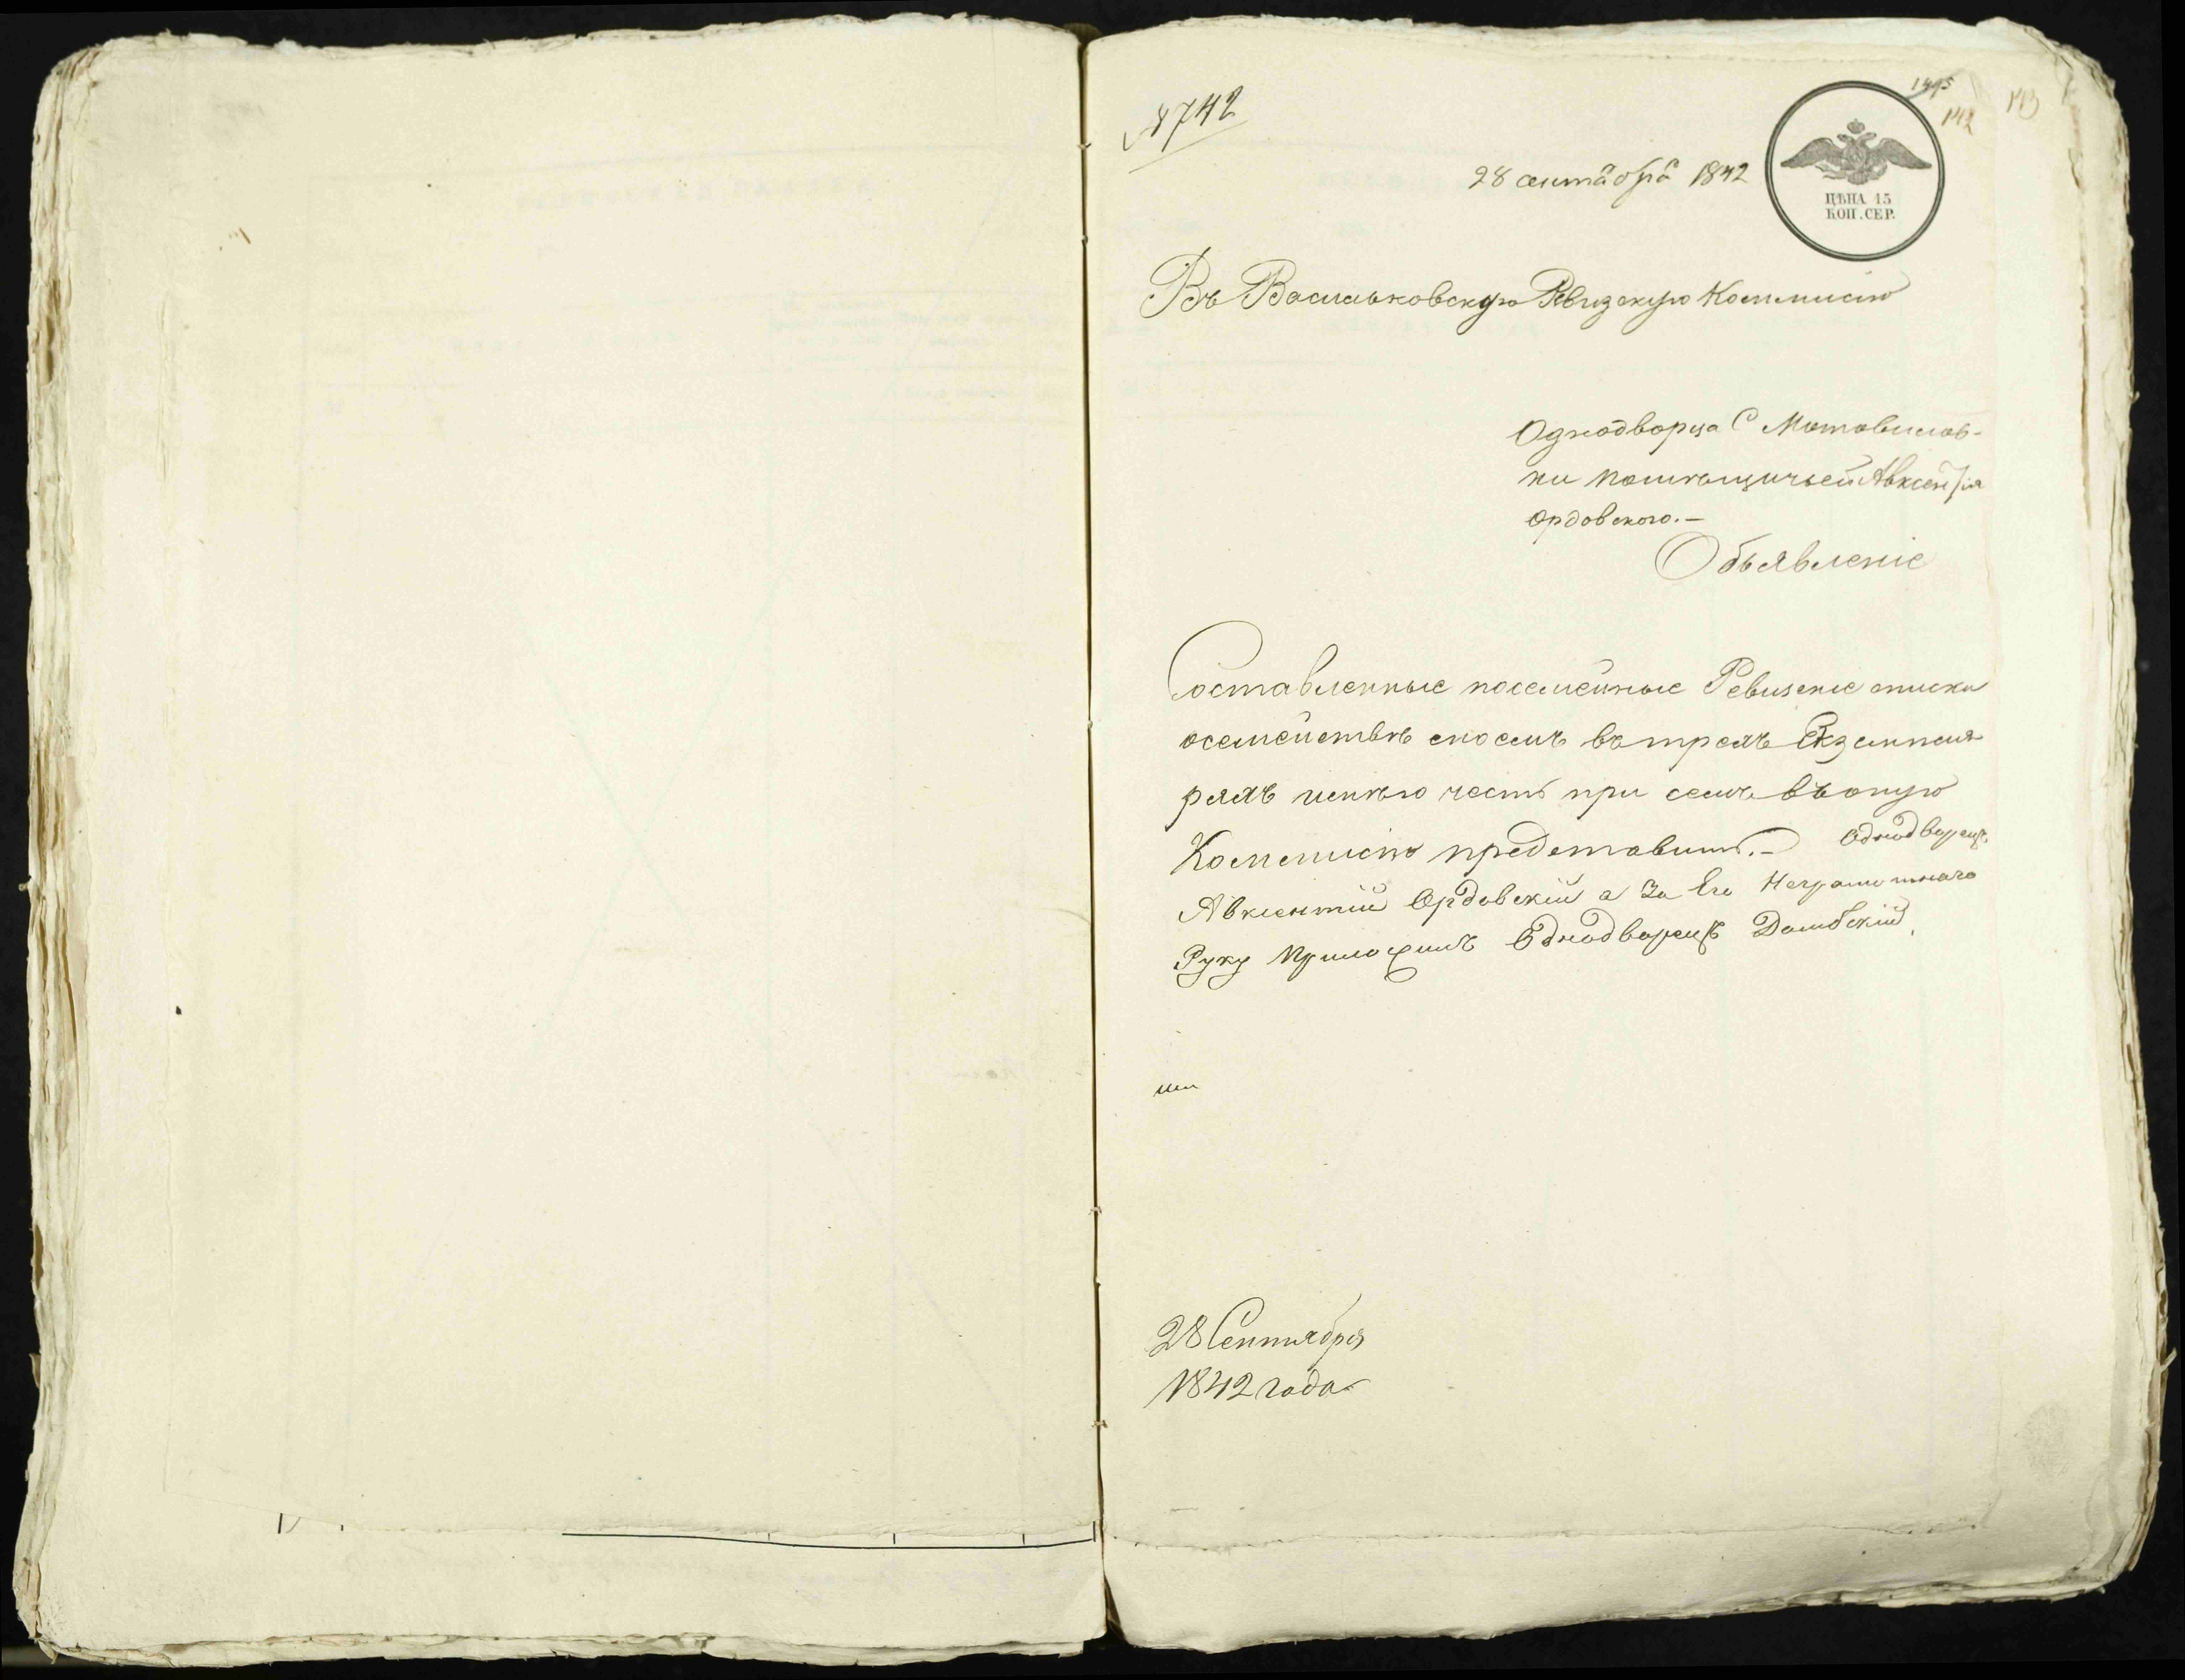 № 742
1495
142
143
28 сентября 1842
ЦѢНА 15
КОП. СЕР.
Въ Васильковскую Ревизскую Коммисію
Однодворца С Мотовилов-
ки помѣщичьей Авксентія
Ордовского.-
Объявленіе
Составленные посемейные Ревизские списки
осемействѣ своемъ въ трехъ Екземпля
рахъ имѣю честь при семъ въ оную
Коммисію представить.- Однодворецъ
Авксентій Ордовскій а За Его Неграмотнаго
Руку Приложилъ Однодворецъ Домбскій
28 Сентября
1842 года